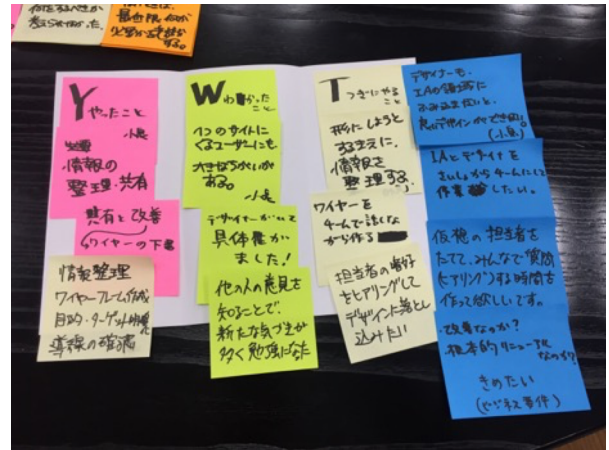 何をするべきか
考えられなかった。
Y やったこと
小長
情報の
整理・共有
共有と改善
ワイヤーの下書
情報整理
ワイヤーフレーム作成
目的・ターゲット明確化
導線の確認
W わかったこと
1つのサイトに
くるユーザーにも
大きなちがいが
ある。
小長
デザイナーがいて
具体化が
ました!
他の人の意見を
知ることで、
新たな気づきが
多く勉強になた
T つぎにやること
形にしようと
するまえに、
情報を
整理する。
ワイヤーを
チームで話しな
がら作る
担当者の嗜好
をヒアリングして
デザインに落とし
込みたい
デザイナーも、
IAの領域に
ふみ込まないと、
良いデザインができない。
IAとデザイナを
さいしょからチームにして
作業したい。
仮想の担当者を
たてて、みんなで質問
(ヒアリング)する時間を
作って欲しいです。
・改善なのか?
・根本的リニューアル
なのか?
きめたい
(ビジネス要件)